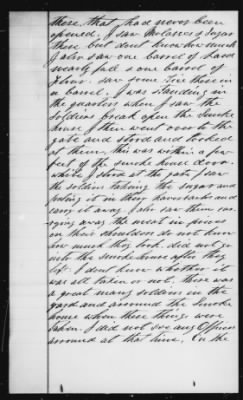 there, that had never been
opened. I saw Molasses & Sugar
there but dont know how much
I also saw one barrel of Lard
nearly full & one barrel of
flour. saw some
in barrel. I was standing in
the quarters when I saw the
soldiers break open the Smoke
house I then went over to the
gate and stood and looked
at them, this was within a few
feet of the smoke house door.
while I stood at the gate, I saw
the soldiers taking the sugar and
putting it in their haversacks and
carry it away. I also saw them car-
rying away the meat in
on their shoulders do not know
how much they took. did not go
into the smoke house after they
left. I dont know whether it
was all taken or not. there was
a great many soldiers in the
yard and around the Smoke
house when these things were
taken. I did not see any Officers
around at that time. On the